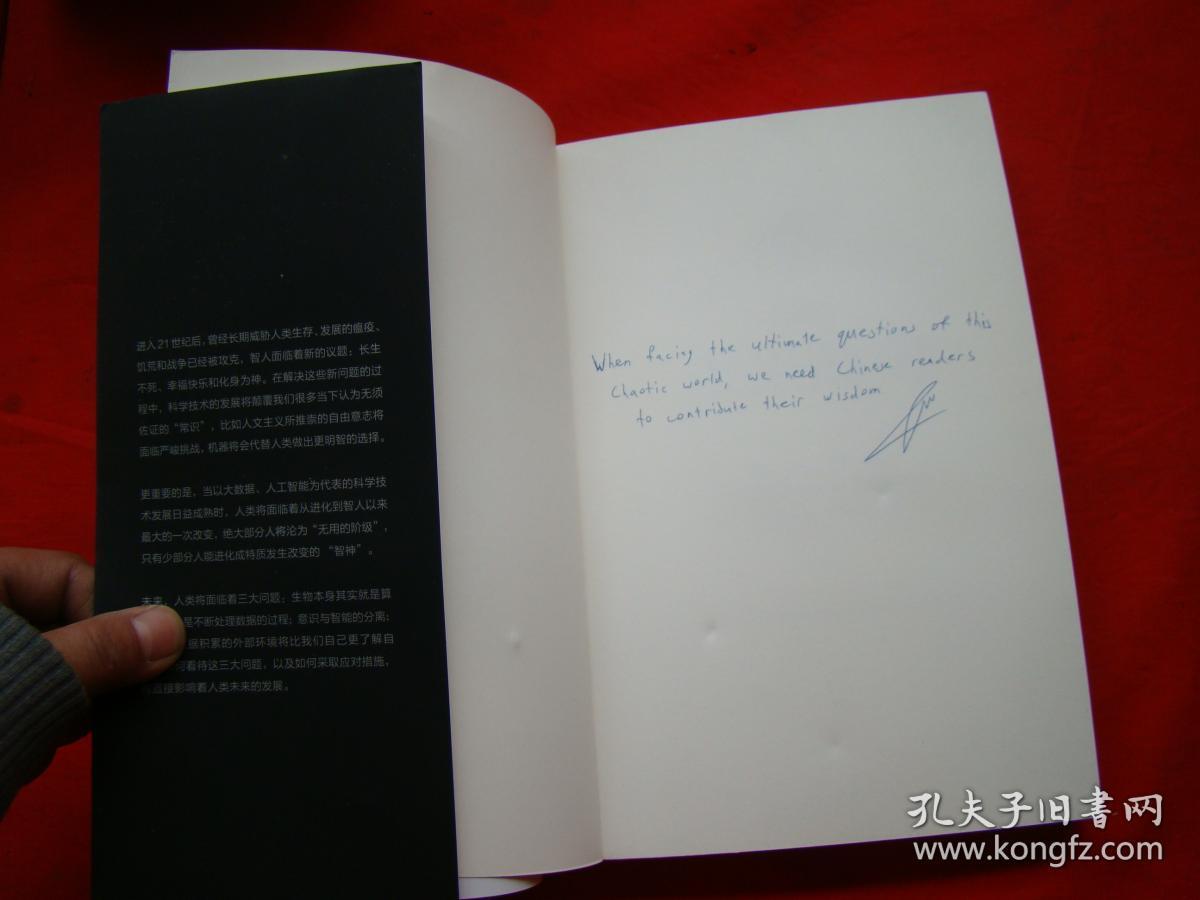 进入21世纪后，曾经长期威胁人类生存、发展的瘟疫、
饥荒和战争已经被攻克，智人面临着新的议题：长生
不死、幸福快乐和化身为神。在解决这些新问题的过
程中，科学技术的发展将颠覆我们很多当下认为无须
佐证的“常识”，比如人文主义所推崇的自由意志将
面临严峻挑战，机器将会代替人类做出更明智的选择。
更重要的是，当以大数据、人工智能为代表的科学技
术发展日益成熟时，人类将面临着从进化到智人以来
最大的一次改变，绝大部分人将沦为“无用的阶级”，
只有少部分人能进化成特质发生改变的“智神”。
未来，人类将面临着三大问题：生物本身其实就是算
是不断处理数据的过程；意识与智能的分离；
据积累的外部环境将比我们自己更了解自
何看待这三大问题，以及如何采取应对措施，
直接影响着人类未来的发展。
When facing the ultimate questions of this
Chaotic world, we need Chinese readers
to contribute their wisdom
孔夫子旧书网
www.kongfz.com